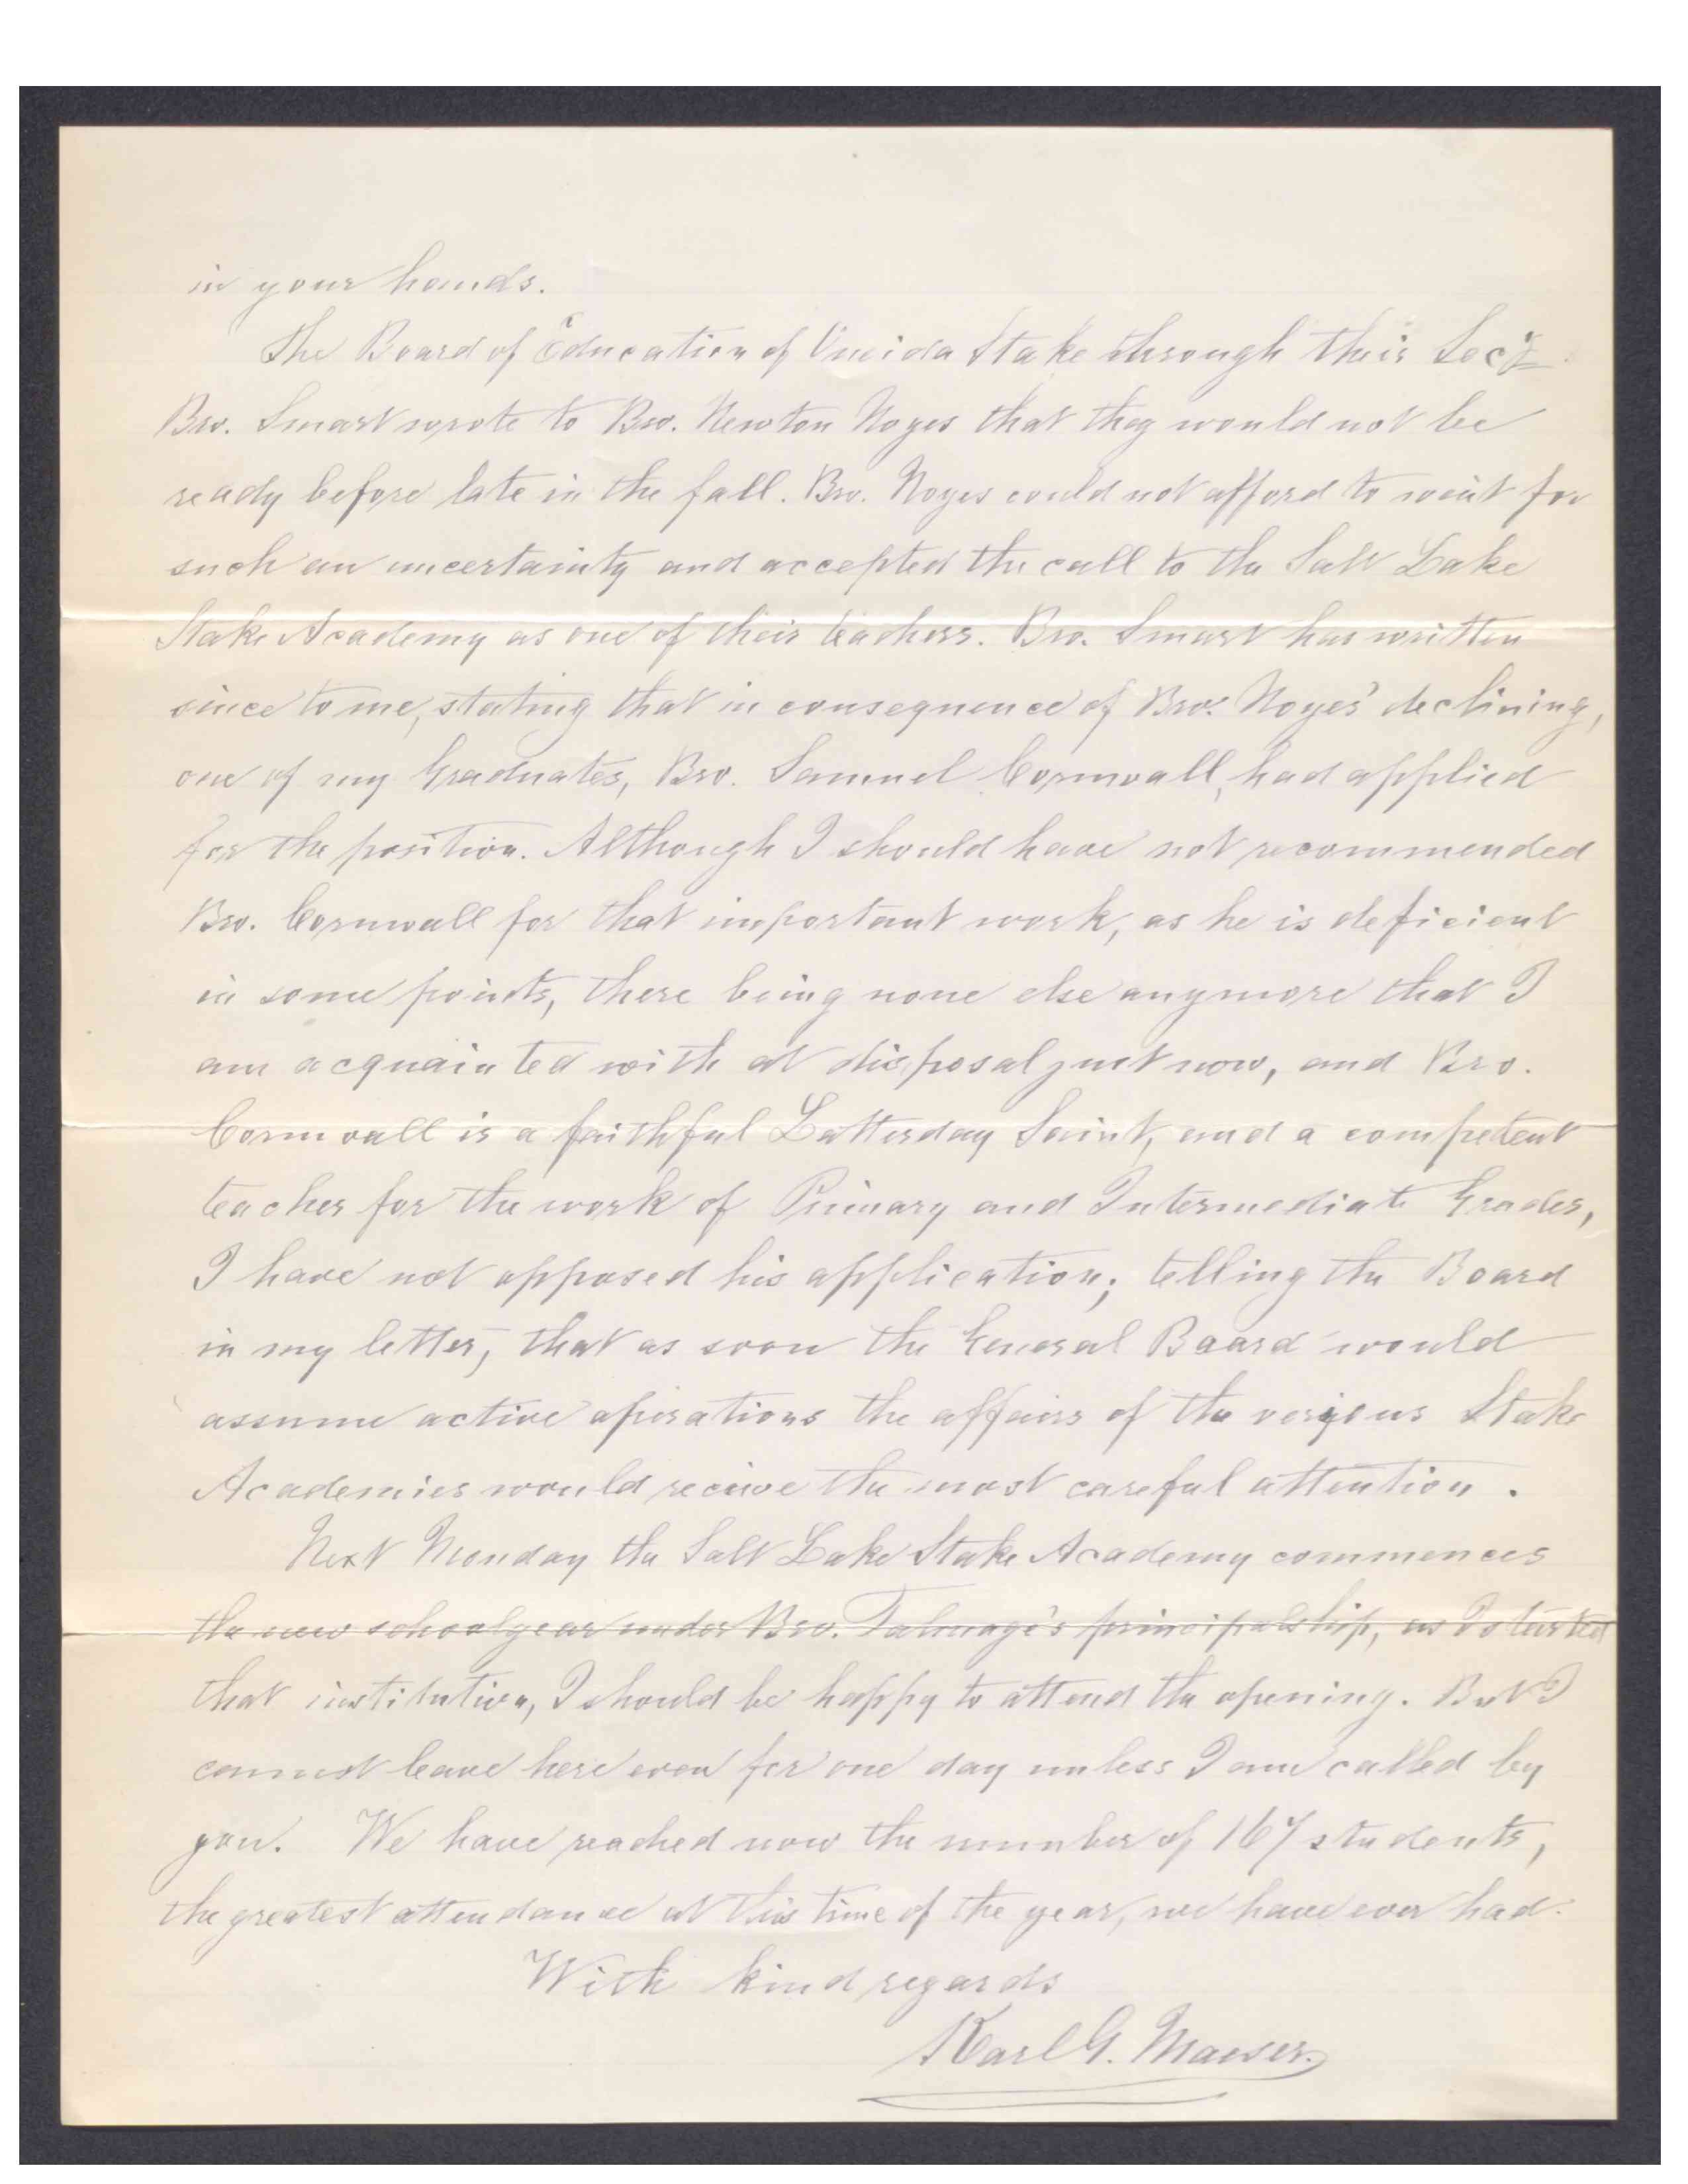 in your hands.
The Board of Education of Oneida Stake through their Secy.
Bro. Smart wrote to Bro. Newton Noyes that they would not be
ready before late in the fall. Bro. Noyes could not afford to wait for
such an uncertainty and accepted the call to the Salt Lake
Stake Academy as one of their teachers. Bro. Smart has written
since to me, stating that in consequence of Bro. Noyes' declining,
one of my Graduates, Bro. Samuel Cornwall, had applied
for the position. Although I should have not recommended
Bro. Cornwall for that important work, as he is deficient
in some points, there being none else anymore that I
am acquainted with at disposal just now, and Bro.
Cornwall is a faithful Latterday Saint, and a competent
teacher for the work of Primary and Intermediate Grades,
I have not opposed his application; telling the Board
in my letter, that as soon the General Board would
assume active operations the affairs of the various Stake
Academies would receive the most careful attention.
Next Monday the Salt Lake Stake Academy commences
the new schoolyear under Bro. Talmage's principalship, as I started
that institution, I should be happy to attend the opening. But I
cannot leave here even for one day unless I am called by
you. We have reached now the number of 167 students,
the greatest attendance at this time of the year, we have ever had.
With kind regards
Karl G. Maeser.